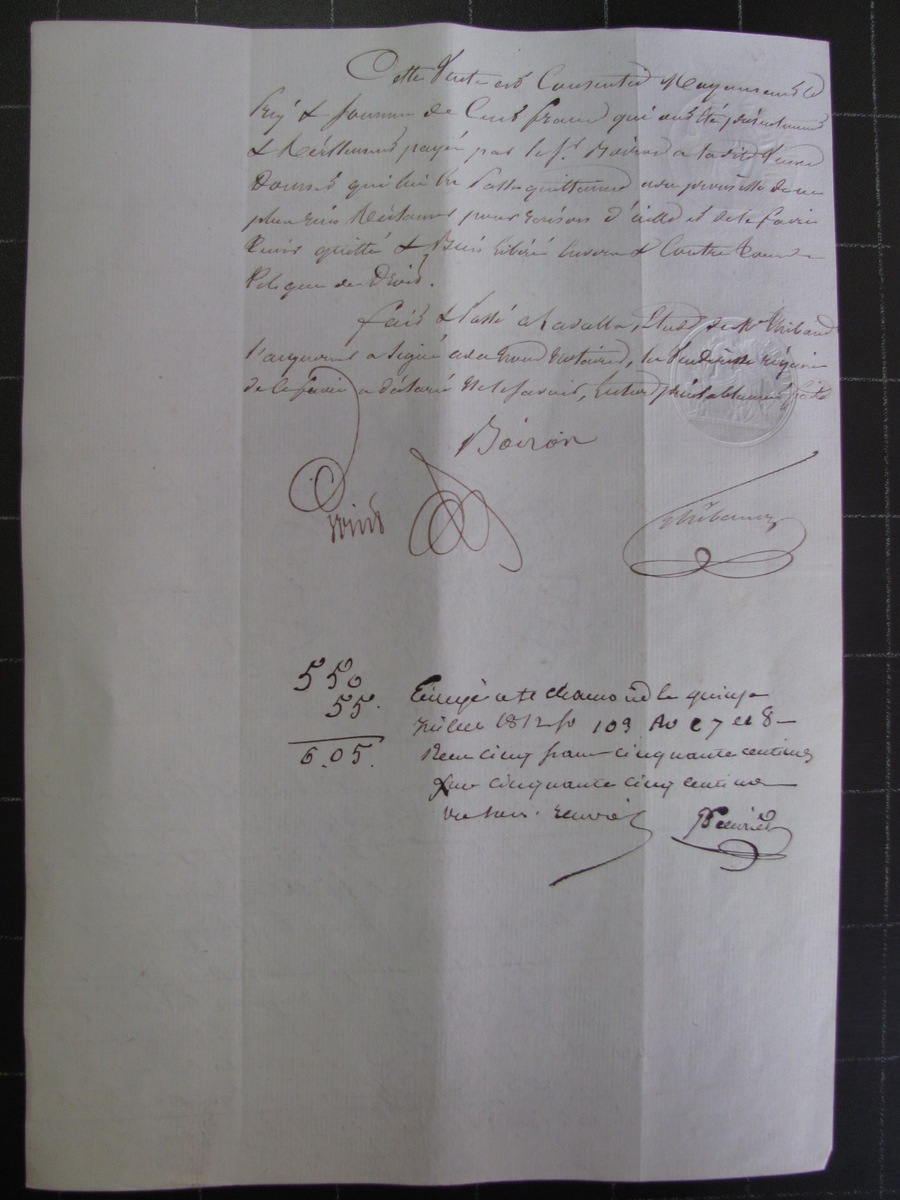 Cette Vente est Consentie Moyennant le
Prix & Somme de Cent francs qui ont été présentement
& Réellement payés par le Sr. Boiron a ladite Veuve
qui lui en Passe quittance avec promesse de ne
plus rien Réclamer pour raison d'icelle et de le faire
tenir quitte & Bien libéré Envers & Contre tous
de Droit.
fait & Passé a Lavalla, Etude de Me Thibaud
l'acquereur a Signé avec Nous Notaires, la Venderesse réquise
de le faire a déclaré Ne le Savoir, lecture préalablement faite
Boiron
Thibaud
550
55.
6.05.
Enregé a St chamond le quinze
1812 fo 109 Ro C 7 et 8
Reçu cinq francs cinquante centimes
pour cinquante cinq centimes